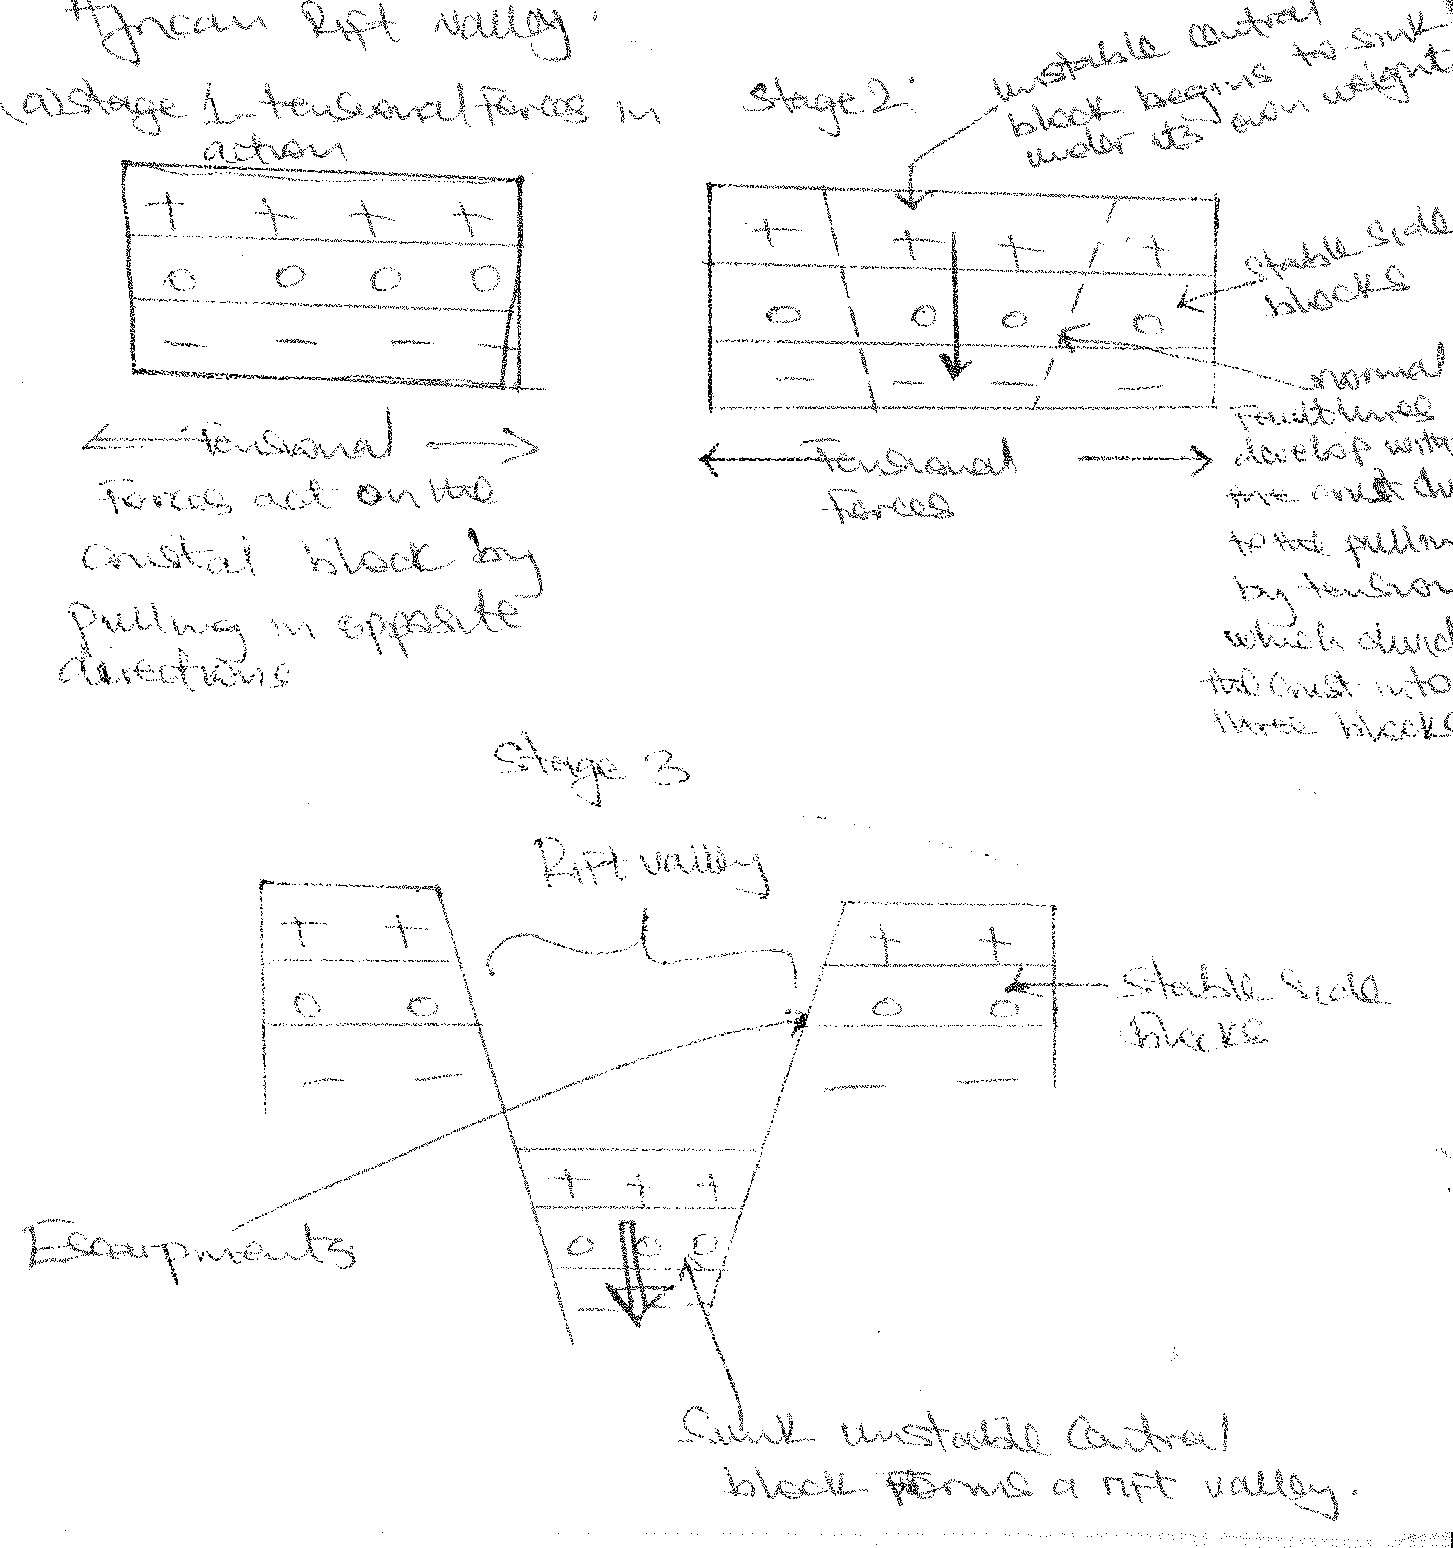 African Rift valley.
(a) Stage 1 tensional forces in
action
+ + + +
o o o o
— — — —
Tensional
Forces act on the
crustal block by
pulling in opposite
directions
Stage 2:
unstable central
block begins to sink
under its own weight
+ + + +
o o o o
— — — —
Stable side
blocks
Tensional
Forces
normal
Fault lines
develop within
the crust du
to the pullin
by tension
which divid
the crust into
three blocks
Stage 3
Rift valley
+ + + +
o o o o
— — — —
Stable side
blocks
+ + +
o o o
Escarpments
Sunk unstable Central
block forms a rift valley.